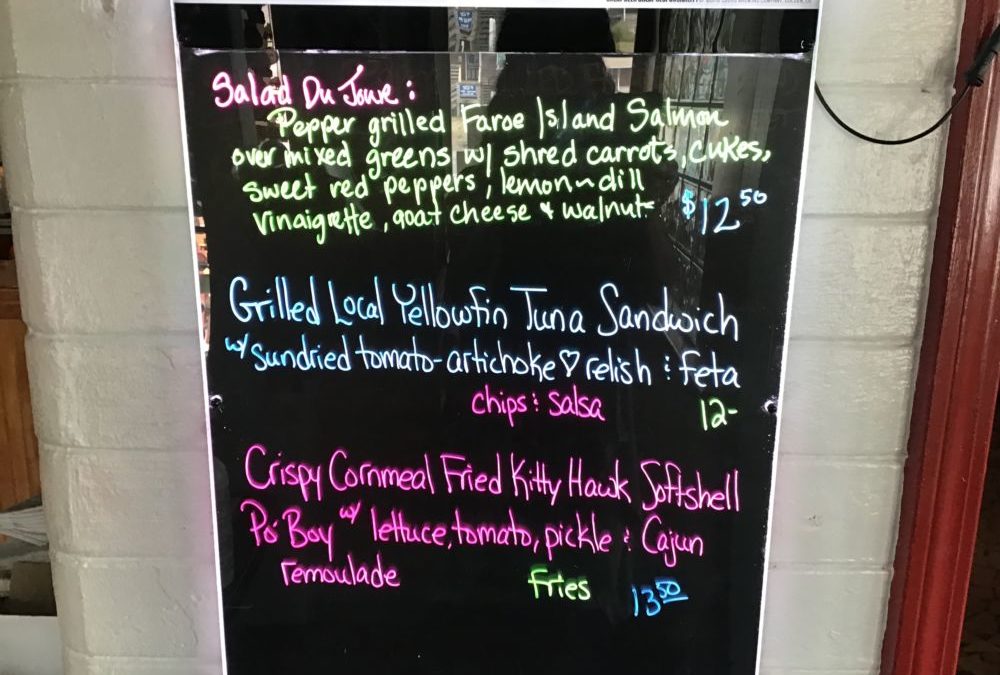 Salad Du Jour:
Pepper grilled Faroe Island Salmon
over mixed greens w/ shred carrots, cukes,
sweet red peppers, lemon~dill
vinaigrette, goat cheese & walnuts $12.50
Grilled Local Yellowfin Tuna Sandwich
w/ sundried tomato-artichoke ♡ relish & feta
chips & salsa 12-
Crispy Cornmeal Fried Kitty Hawk Softshell
Po' Boy w/ lettuce, tomato, pickle & Cajun
remoulade Fries 13.50